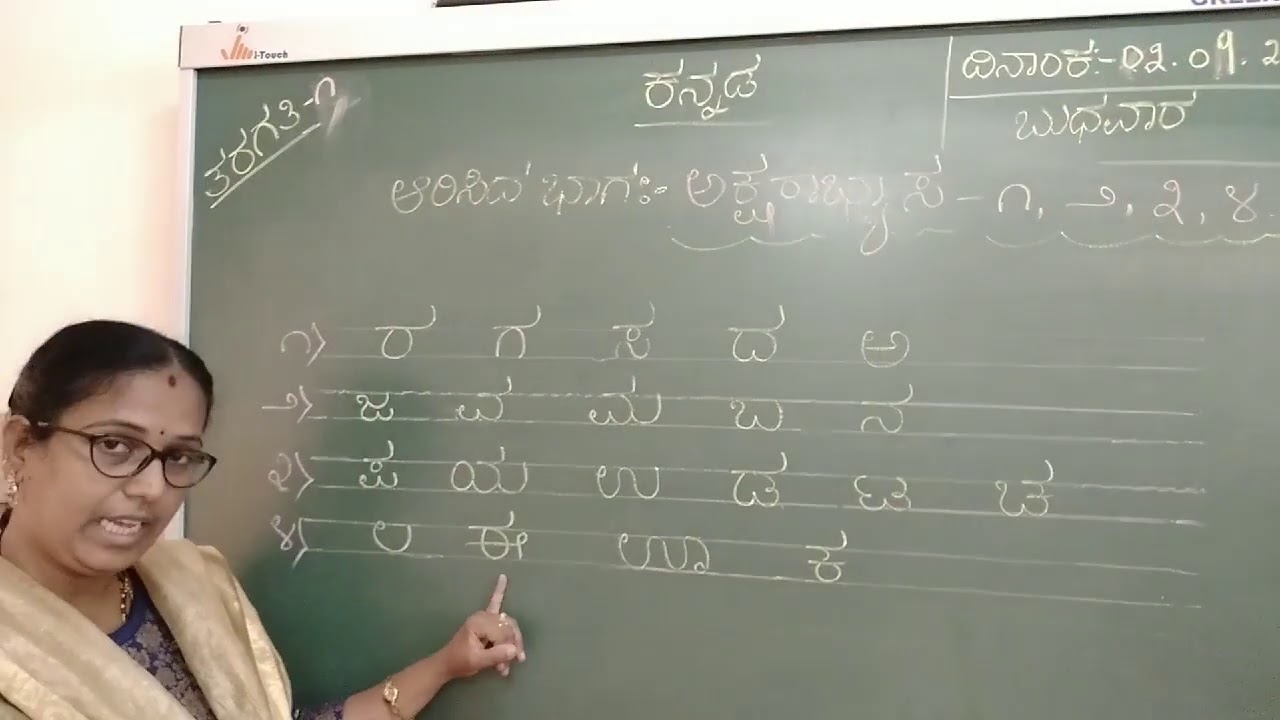 i-Touch
ತರಗತಿ-೧
ಕನ್ನಡ
ದಿನಾಂಕ:-೦೩.೦೧.೨
ಬುಧವಾರ
ಆರಿಸಿದ ಭಾಗ:- ಅಕ್ಷರಾಭ್ಯಾಸ - ೧, ೨, ೩, ೪.
೧) ರ ಗ ಸ ದ ಅ
೨) ಜ ವ ಮ ಬ ನ
೩) ಪ ಯ ಉ ಡ ಟ ಚ
೪) ಲ ಈ ಊ ಕ